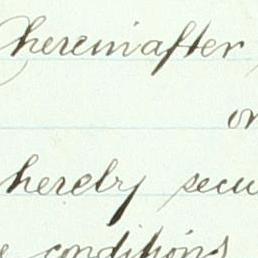 hereinafter
or
hereby secu
conditions